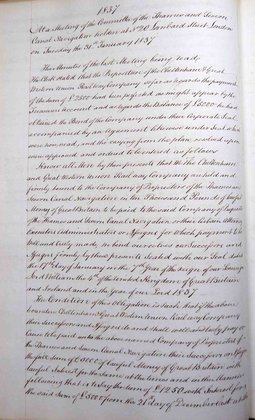 1837
At a Meeting of the Committee of the Thames and Severn
Canal Navigation holden at No 20 Lombard Street London
on Tuesday the 31st January 1837
The Minutes of the last Meeting being read,
The Clerk stated that the Proprietors of the Cheltenham & Great
Western Union Railway Company so far as regards the payment
of the sum of £2500 had been perfected as might appear by the
Treasurers account and as regards the Balance of £5000 he had
obtained the Bond of the Company under their Corporate Seal
accompanied by an Agreement likewise under Seal which
were now read, and the saying from the plan
were approved and ordered to be entered as follows
Know all Men by these presents that We the Cheltenham
and Great Western Union Railway Company are held and
firmly bound to the Company of Proprietors of the Thames and
Severn Canal Navigation in the Thousand Pounds of lawful
Money of Great Britain to be paid to the said Company of Proprietors
of the Thames and Severn Canal Navigation, their certain Attorney
Executors Administrators or Assigns for which payment to be
well and truly made, we bind ourselves our Successors and
Assigns firmly by these presents Sealed with our Seal dated
the 17th day of January in the 7th Year of the Reign of our Sovereign
Lord William the 4th of the United Kingdom of Great Britain
and Ireland and in the year of our Lord 1837
The Condition of this Obligation is such that if the above
bounden Cheltenham & Great Western Union Railway Company
their Successors and Assigns do and shall well and truly pay or
cause to be paid unto the above named Company of Proprietors of
the Thames and Severn Canal Navigation their Successors or Assigns
the full Sum of £5000 of lawful Money of Great Britain with
lawful Interest for the same at the times and in the Manner
following that is to say the sum of £1250 with Interest for
the said Sum of £5000 from the 21st day of December last